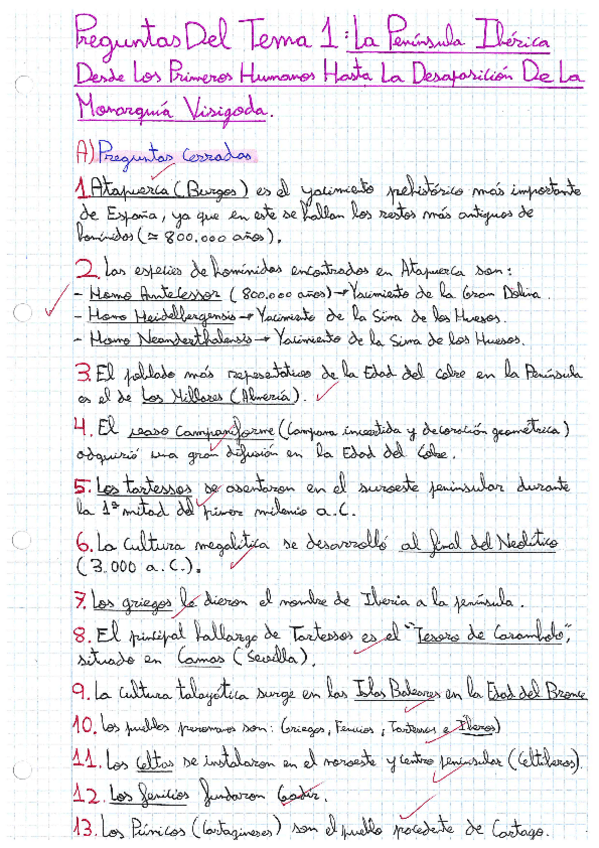 Preguntas Del Tema 1: La Península Ibérica
Desde Los Primeros Humanos Hasta La Desaparición De La
Monarquía Visigoda.
A) Preguntas Cerradas
1. Atapuerca (Burgos) es el yacimiento prehistórico más importante
de España, ya que en este se hallan los restos más antiguos de
homínidos (≈ 800.000 años).
2. Las especies de homínidos encontrados en Atapuerca son:
- Homo Antecessor (800.000 años) → Yacimiento de la Gran Dolina.
- Homo Heidelbergensis → Yacimiento de la Sima de los Huesos.
- Homo Neanderthalensis → Yacimiento de la Sima de los Huesos.
3. El poblado más representativo de la Edad del cobre en la Península
es el de Los Millares (Almería).
4. El vaso campaniforme (Campana invertida y decoración geométrica)
adquirió una gran difusión en la Edad del Cobre.
5. Los tartessos se asentaron en el suroeste peninsular durante
la 1ª mitad del primer milenio a.C.
6. La Cultura megalítica se desarrolló al final del Neolítico
(3.000 a.C.).
7. Los griegos le dieron el nombre de Iberia a la península.
8. El principal hallazgo de Tartessos es el "Tesoro de Carambolo",
situado en Camas (Sevilla).
9. La Cultura talayótica surge en las Islas Baleares en la Edad del Bronce
10. Los pueblos prerromanos son: (Griegos, Fenicios, Tartessos e Iberos)
11. Los Celtas se instalaron en el noroeste y centro peninsular (Celtíberos).
12. Los fenicios fundaron Gadir.
13. Los Púnicos (Cartagineses) son el pueblo procedente de Cartago.